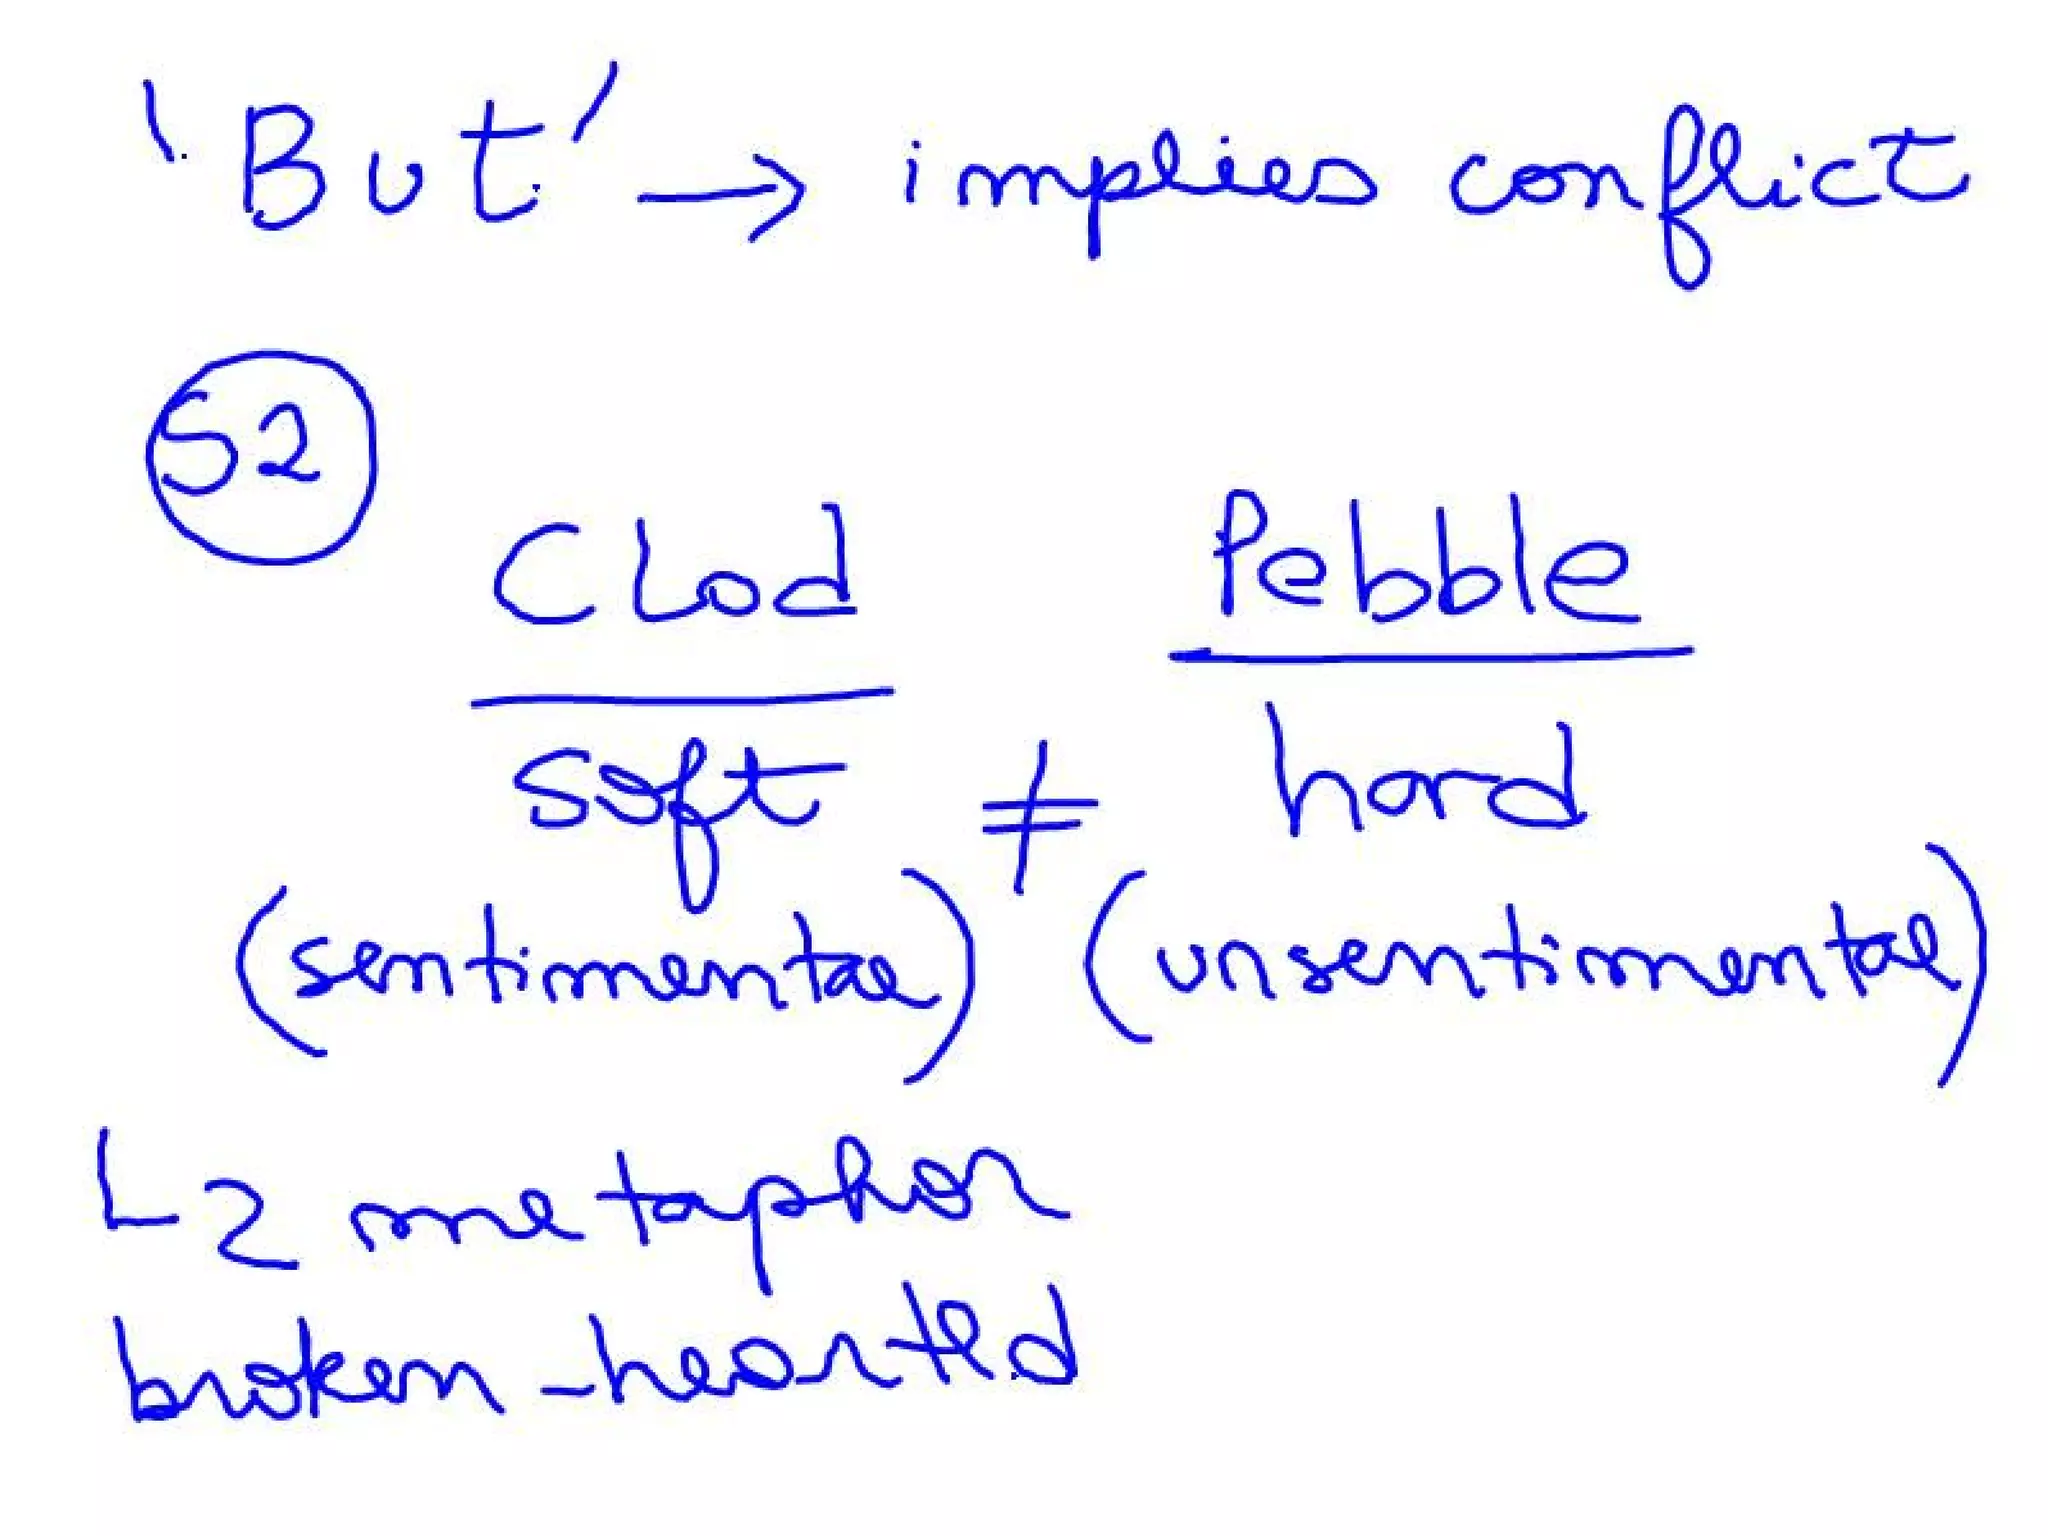 'But' → implies conflict
S2
Clod Pebble
soft ≠ hard
(sentimental) (unsentimental)
L2 metaphor
broken-hearted